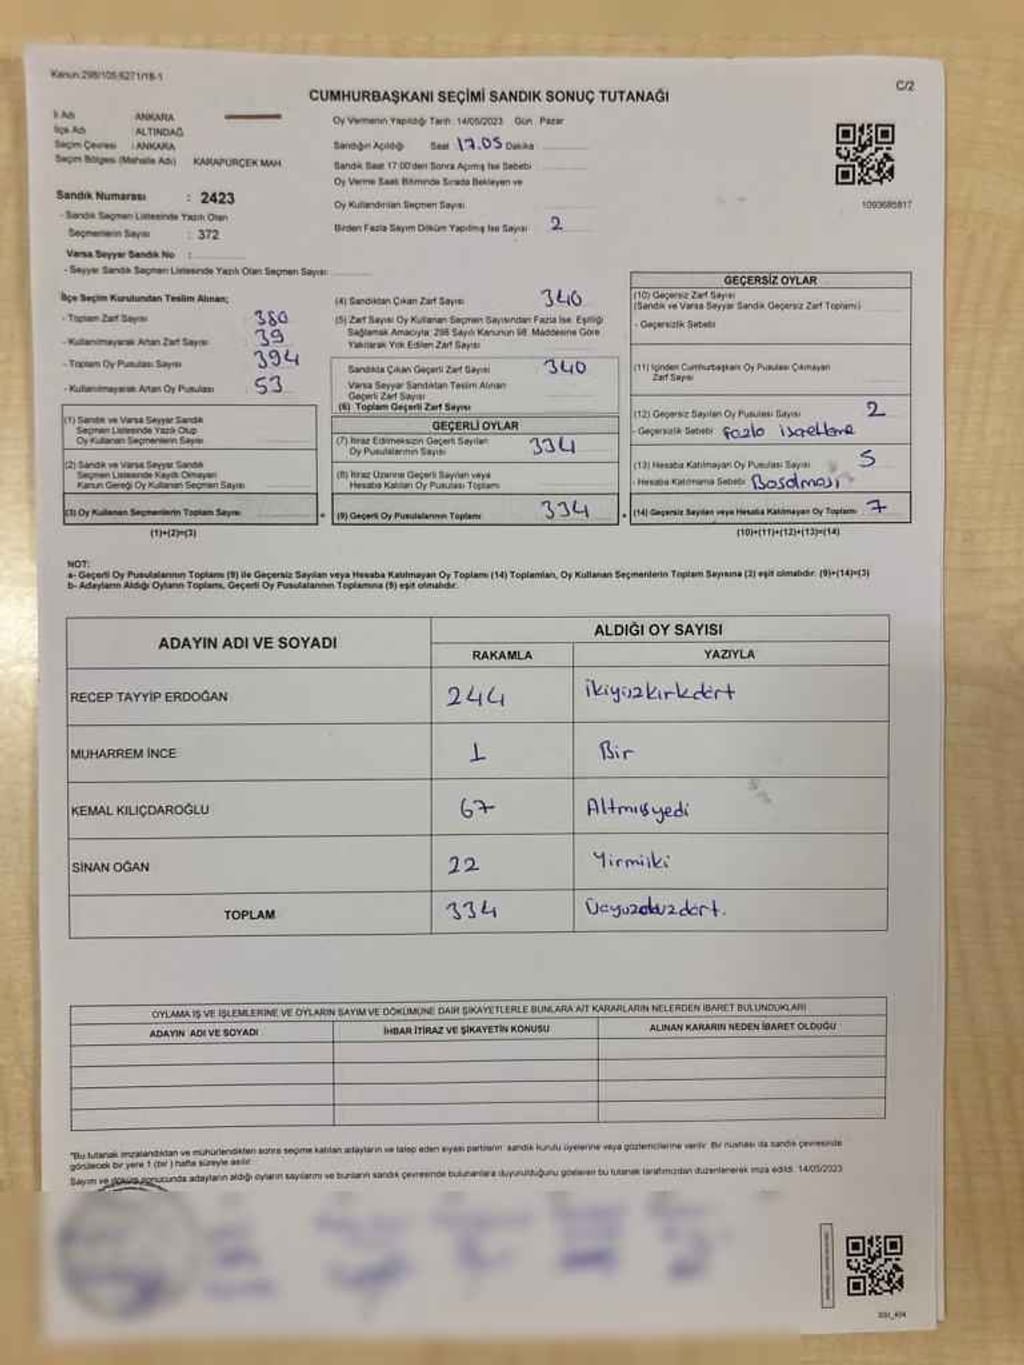 Kanun:298/105;6271/18-1
C/2
CUMHURBAŞKANI SEÇİMİ SANDIK SONUÇ TUTANAĞI
İl Adı ANKARA
İlçe Adı ALTINDAĞ
Seçim Çevresi : ANKARA
Seçim Bölgesi (Mahalle Adı) KARAPÜRÇEK MAH.
Sandık Numarası : 2423
- Sandık Seçmen Listesinde Yazılı Olan
Seçmenlerin Sayısı : 372
Varsa Seyyar Sandık No :
- Seyyar Sandık Seçmen Listesinde Yazılı Olan Seçmen Sayısı
Oy Vermenin Yapıldığı Tarih: 14/05/2023 Gün: Pazar
Sandığın Açıldığı Saat 17.05 Dakika
Sandık Saat 17:00'den Sonra Açılmış İse Sebebi
Oy Verme Saati Bitiminde Sırada Bekleyen ve
Oy Kullandırılan Seçmen Sayısı
Birden Fazla Sayım Döküm Yapılmış İse Sayısı 2
1093685817
İlçe Seçim Kurulundan Teslim Alınan;
- Toplam Zarf Sayısı 380
- Kullanılmayarak Artan Zarf Sayısı 39
- Toplam Oy Pusulası Sayısı 394
- Kullanılmayarak Artan Oy Pusulası 53
(1) Sandık ve Varsa Seyyar Sandık
Seçmen Listesinde Yazılı Olup
Oy Kullanan Seçmenlerin Sayısı
(2) Sandık ve Varsa Seyyar Sandık
Seçmen Listesinde Kayıtlı Olmayan
Kanun Gereği Oy Kullanan Seçmen Sayısı
(3) Oy Kullanan Seçmenlerin Toplam Sayısı
(1)+(2)=(3)
(4) Sandıktan Çıkan Zarf Sayısı 340
(5) Zarf Sayısı Oy Kullanan Seçmen Sayısından Fazla İse, Eşitliği
Sağlamak Amacıyla; 298 Sayılı Kanunun 98. Maddesine Göre
Yakılarak Yok Edilen Zarf Sayısı
Sandıkta Çıkan Geçerli Zarf Sayısı 340
Varsa Seyyar Sandıktan Teslim Alınan
Geçerli Zarf Sayısı
(6) Toplam Geçerli Zarf Sayısı
GEÇERLİ OYLAR
(7) İtiraz Edilmeksizin Geçerli Sayılan
Oy Pusulasının Sayısı 334
(8) İtiraz Üzerine Geçerli Sayılan veya
Hesaba Katılan Oy Pusulası Toplamı
(9) Geçerli Oy Pusulalarının Toplamı 334
GEÇERSİZ OYLAR
(10) Geçersiz Zarf Sayısı
(Sandık ve Varsa Seyyar Sandık Geçersiz Zarf Toplamı)
- Geçersizlik Sebebi
(11) İçinden Cumhurbaşkanı Oy Pusulası Çıkmayan
Zarf Sayısı
(12) Geçersiz Sayılan Oy Pusulası Sayısı 2
- Geçersizlik Sebebi fazla işaretleme
(13) Hesaba Katılmayan Oy Pusulası Sayısı 5
- Hesaba Katılmama Sebebi Basılması
(14) Geçersiz Sayılan veya Hesaba Katılmayan Oy Toplamı 7
(10)+(11)+(12)+(13)=(14)
NOT:
a- Geçerli Oy Pusulalarının Toplamı (9) ile Geçersiz Sayılan veya Hesaba Katılmayan Oy Toplamı (14) Toplamları, Oy Kullanan Seçmenlerin Toplam Sayısına (3) eşit olmalıdır. (9)+(14)=(3)
b- Adayların Aldığı Oyların Toplamı, Geçerli Oy Pusulalarının Toplamına (9) eşit olmalıdır.
ADAYIN ADI VE SOYADI
ALDIĞI OY SAYISI
RAKAMLA YAZIYLA
RECEP TAYYİP ERDOĞAN 244 İkiyüzkırkdört
MUHARREM İNCE 1 Bir
KEMAL KILIÇDAROĞLU 67 Altmışyedi
SİNAN OĞAN 22 Yirmiiki
TOPLAM 334 Üçyüzotuzdört.
OYLAMA İŞ VE İŞLEMLERİNE VE OYLARIN SAYIM VE DÖKÜMÜNE DAİR ŞİKAYETLERLE BUNLARA AİT KARARLARIN NELERDEN İBARET BULUNDUKLARI
ADAYIN ADI VE SOYADI İHBAR İTİRAZ VE ŞİKAYETİN KONUSU ALINAN KARARIN NEDEN İBARET OLDUĞU
*Bu tutanak imzalandıktan ve mühürlendikten sonra seçime katılan adayların ve talep eden siyasi partilerin sandık kurulu üyelerine veya gözlemcilerine verilir. Bir nüshası da sandık çevresinde
görülecek bir yere 1 (bir) hafta süreyle asılır.
Sayım ve döküm sonucunda adayların aldığı oyların sayılarını ve bunların sandık çevresinde bulunanlara duyurulduğunu gösteren bu tutanak tarafımızdan düzenlenerek imza edildi. 14/05/2023